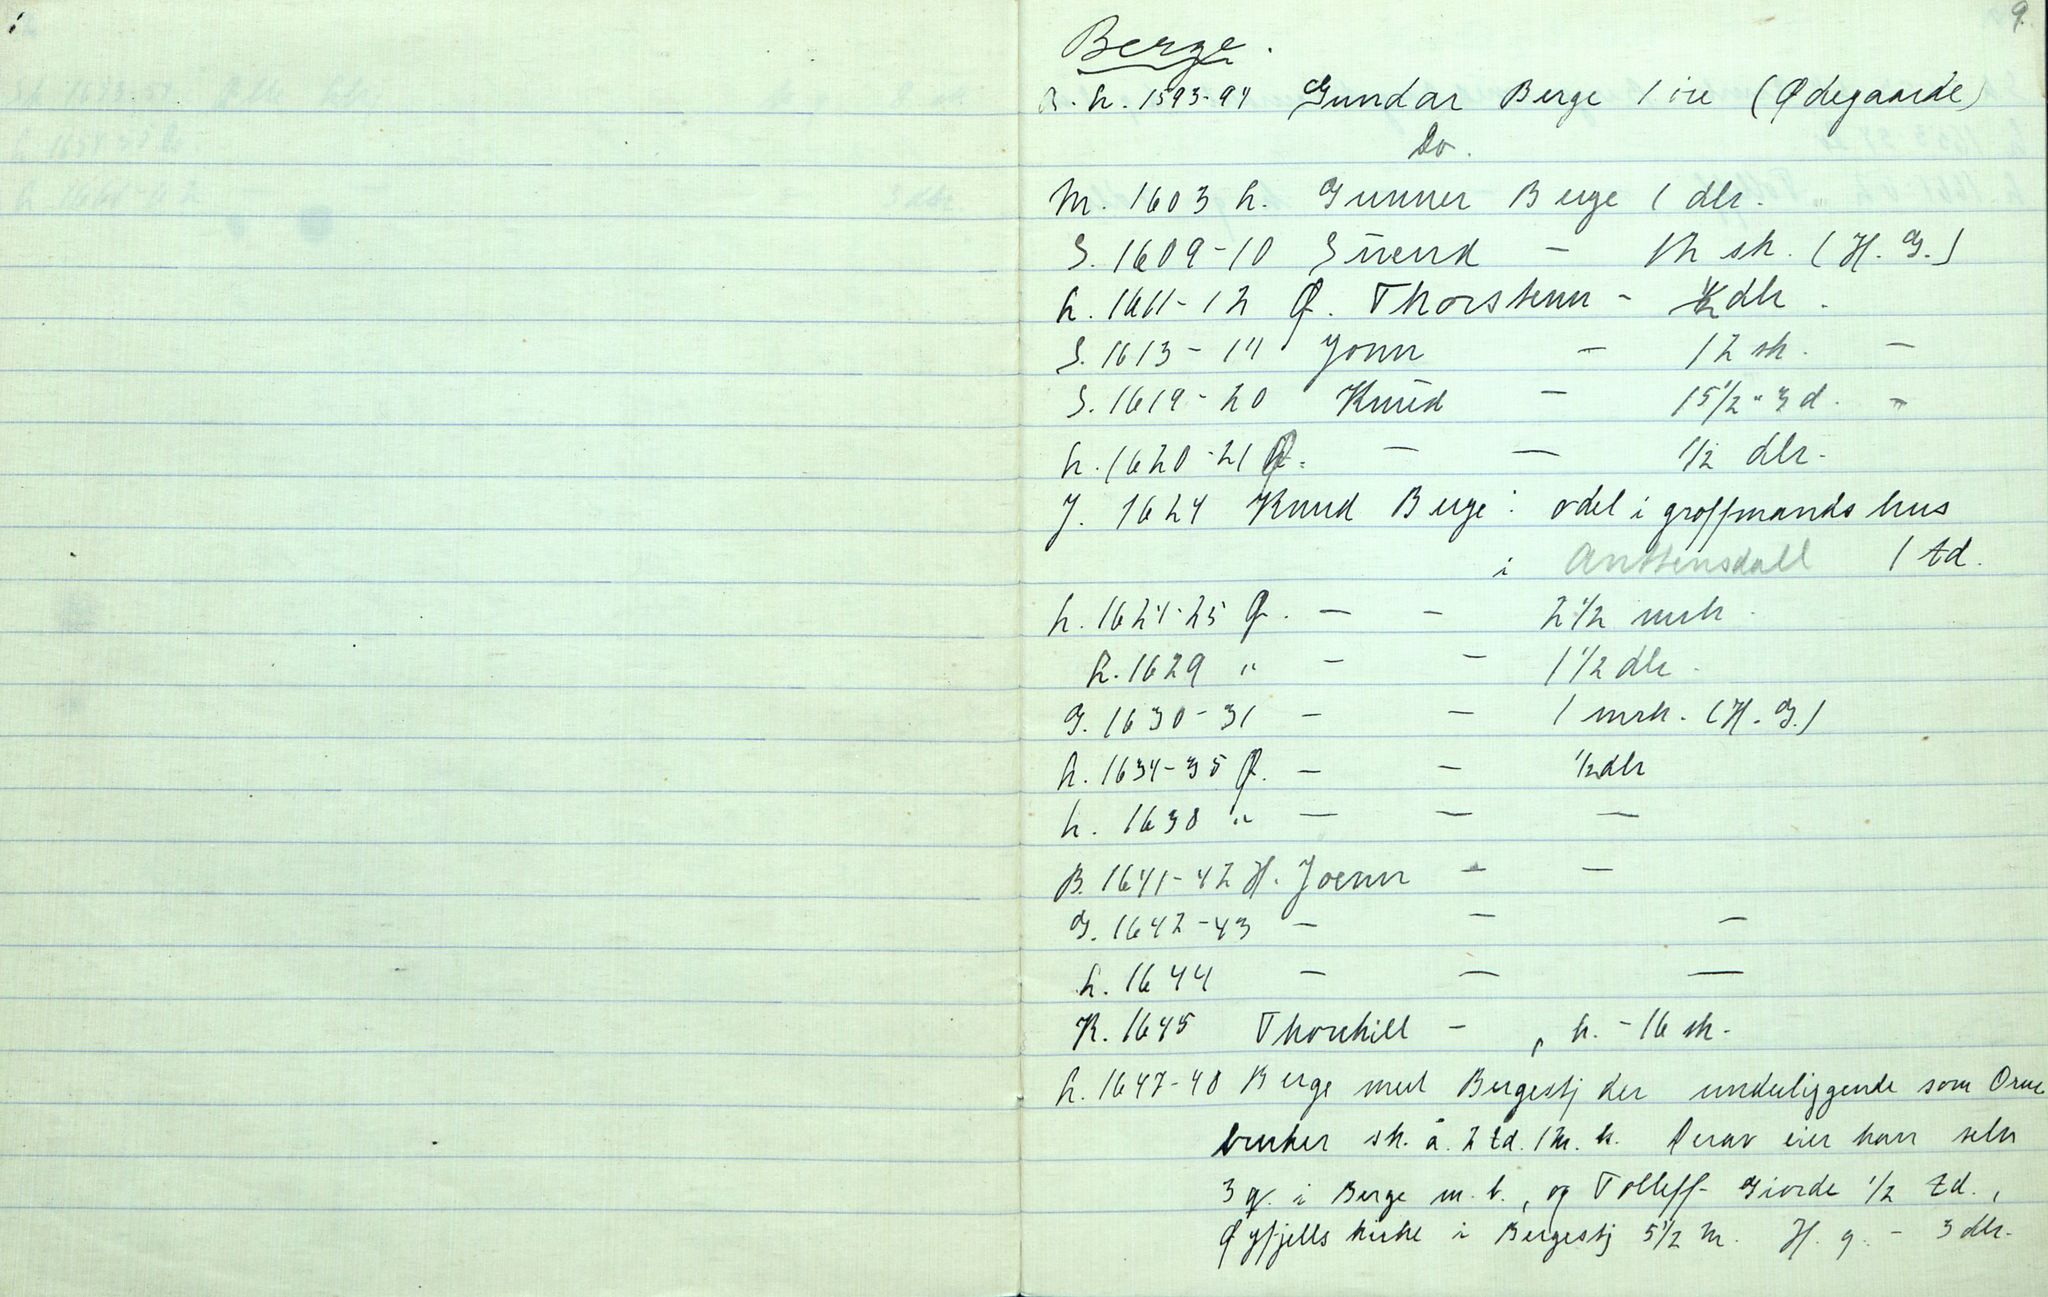 9.
Berge.
R. h. 1593-94 Gundar Berge 1 øre (Ødegaarde)
Do.
M. 1603 h. Gunner Berge 1 dlr.
S. 1609-10 Siüend — 12 sk. (H. G.)
h. 1611-12 Ø. Thorstenn - ½ dlr.
S. 1613-14 Jonn — 12 sk. —
S. 1619-20 Knüd — 15½ " 3 d. -
h. 1620-21 Ø. — — ½ dlr.
J. 1624 Knud Berge: odel i groffmands hus
i Anttensdall 1 td.
h. 1624-25 Ø. — — 2½ mrk
h. 1629 " — — 1½ dlr.
G. 1630-31 — — 1 mrk. (H. G.)
h. 1634-35 Ø. — — ½ dlr
h. 1638 " — — —
B. 1641-42 H. Joenn — —
G. 1642-43 — — —
h. 1644 — — —
K. 1645 Thorkill — , h. - 16 sk.
h. 1647-48 Berge med Bergestj der underliggende som Orm
bruker sk. a. 2 td. 1 m. k. Derav eier han selv
3 q. i Berge m. b., og Tolleff Giorde ½ td.,
Øyfjells kirke i Bergestj 5½ m. H. g. - 3 dlr.